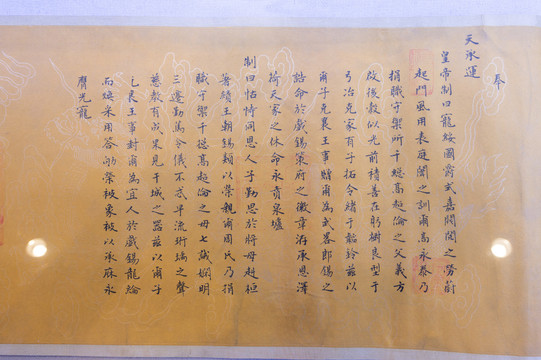 奉
天承運
皇帝制曰寵綏國爵式嘉閥閱之勞蔚
起門風用表庭闈之訓爾高永泰乃
捐職守禦所千總高超倫之父義方
啟後穀似光前積善在躬樹良型于
弓冶克家有子拓令緒于韜鈐茲以
爾子克襄王事贈爾為武畧郎錫之
誥命於戲錫策府之徽章洊承恩澤
荷天家之休命永賁泉壚
制曰怙恃同恩人子勤思於將母赳桓
著績王朝錫類以榮親爾周氏乃捐
職守禦千總高超倫之母七誡嫻明
三遷勤篤令儀不忒早流珩瑀之聲
慈教有成果見干城之器茲以爾子
克襄王事封爾為宜人於戲錫龍綸
而煥采用答劬勞被象服以承庥永
膺光寵